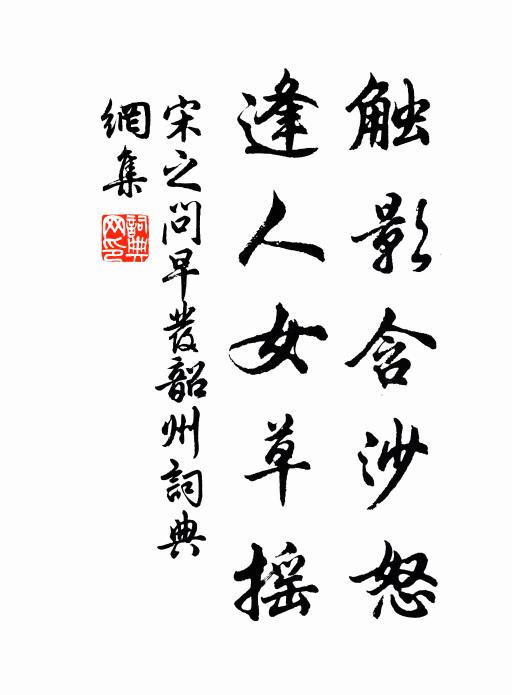 触影含沙怒
逢人女草摇
宋之问早發韶州詞典
網集
詞典
网印